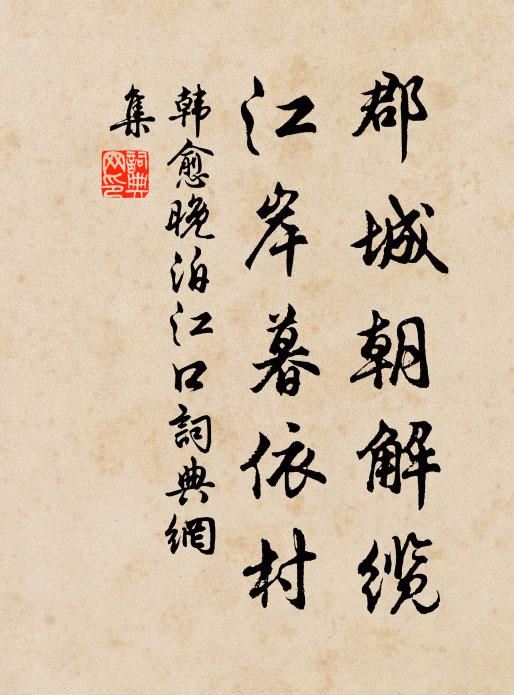 郡城朝解缆
江岸暮依村
韩愈晚泊江口詞典網
集
詞典
网印